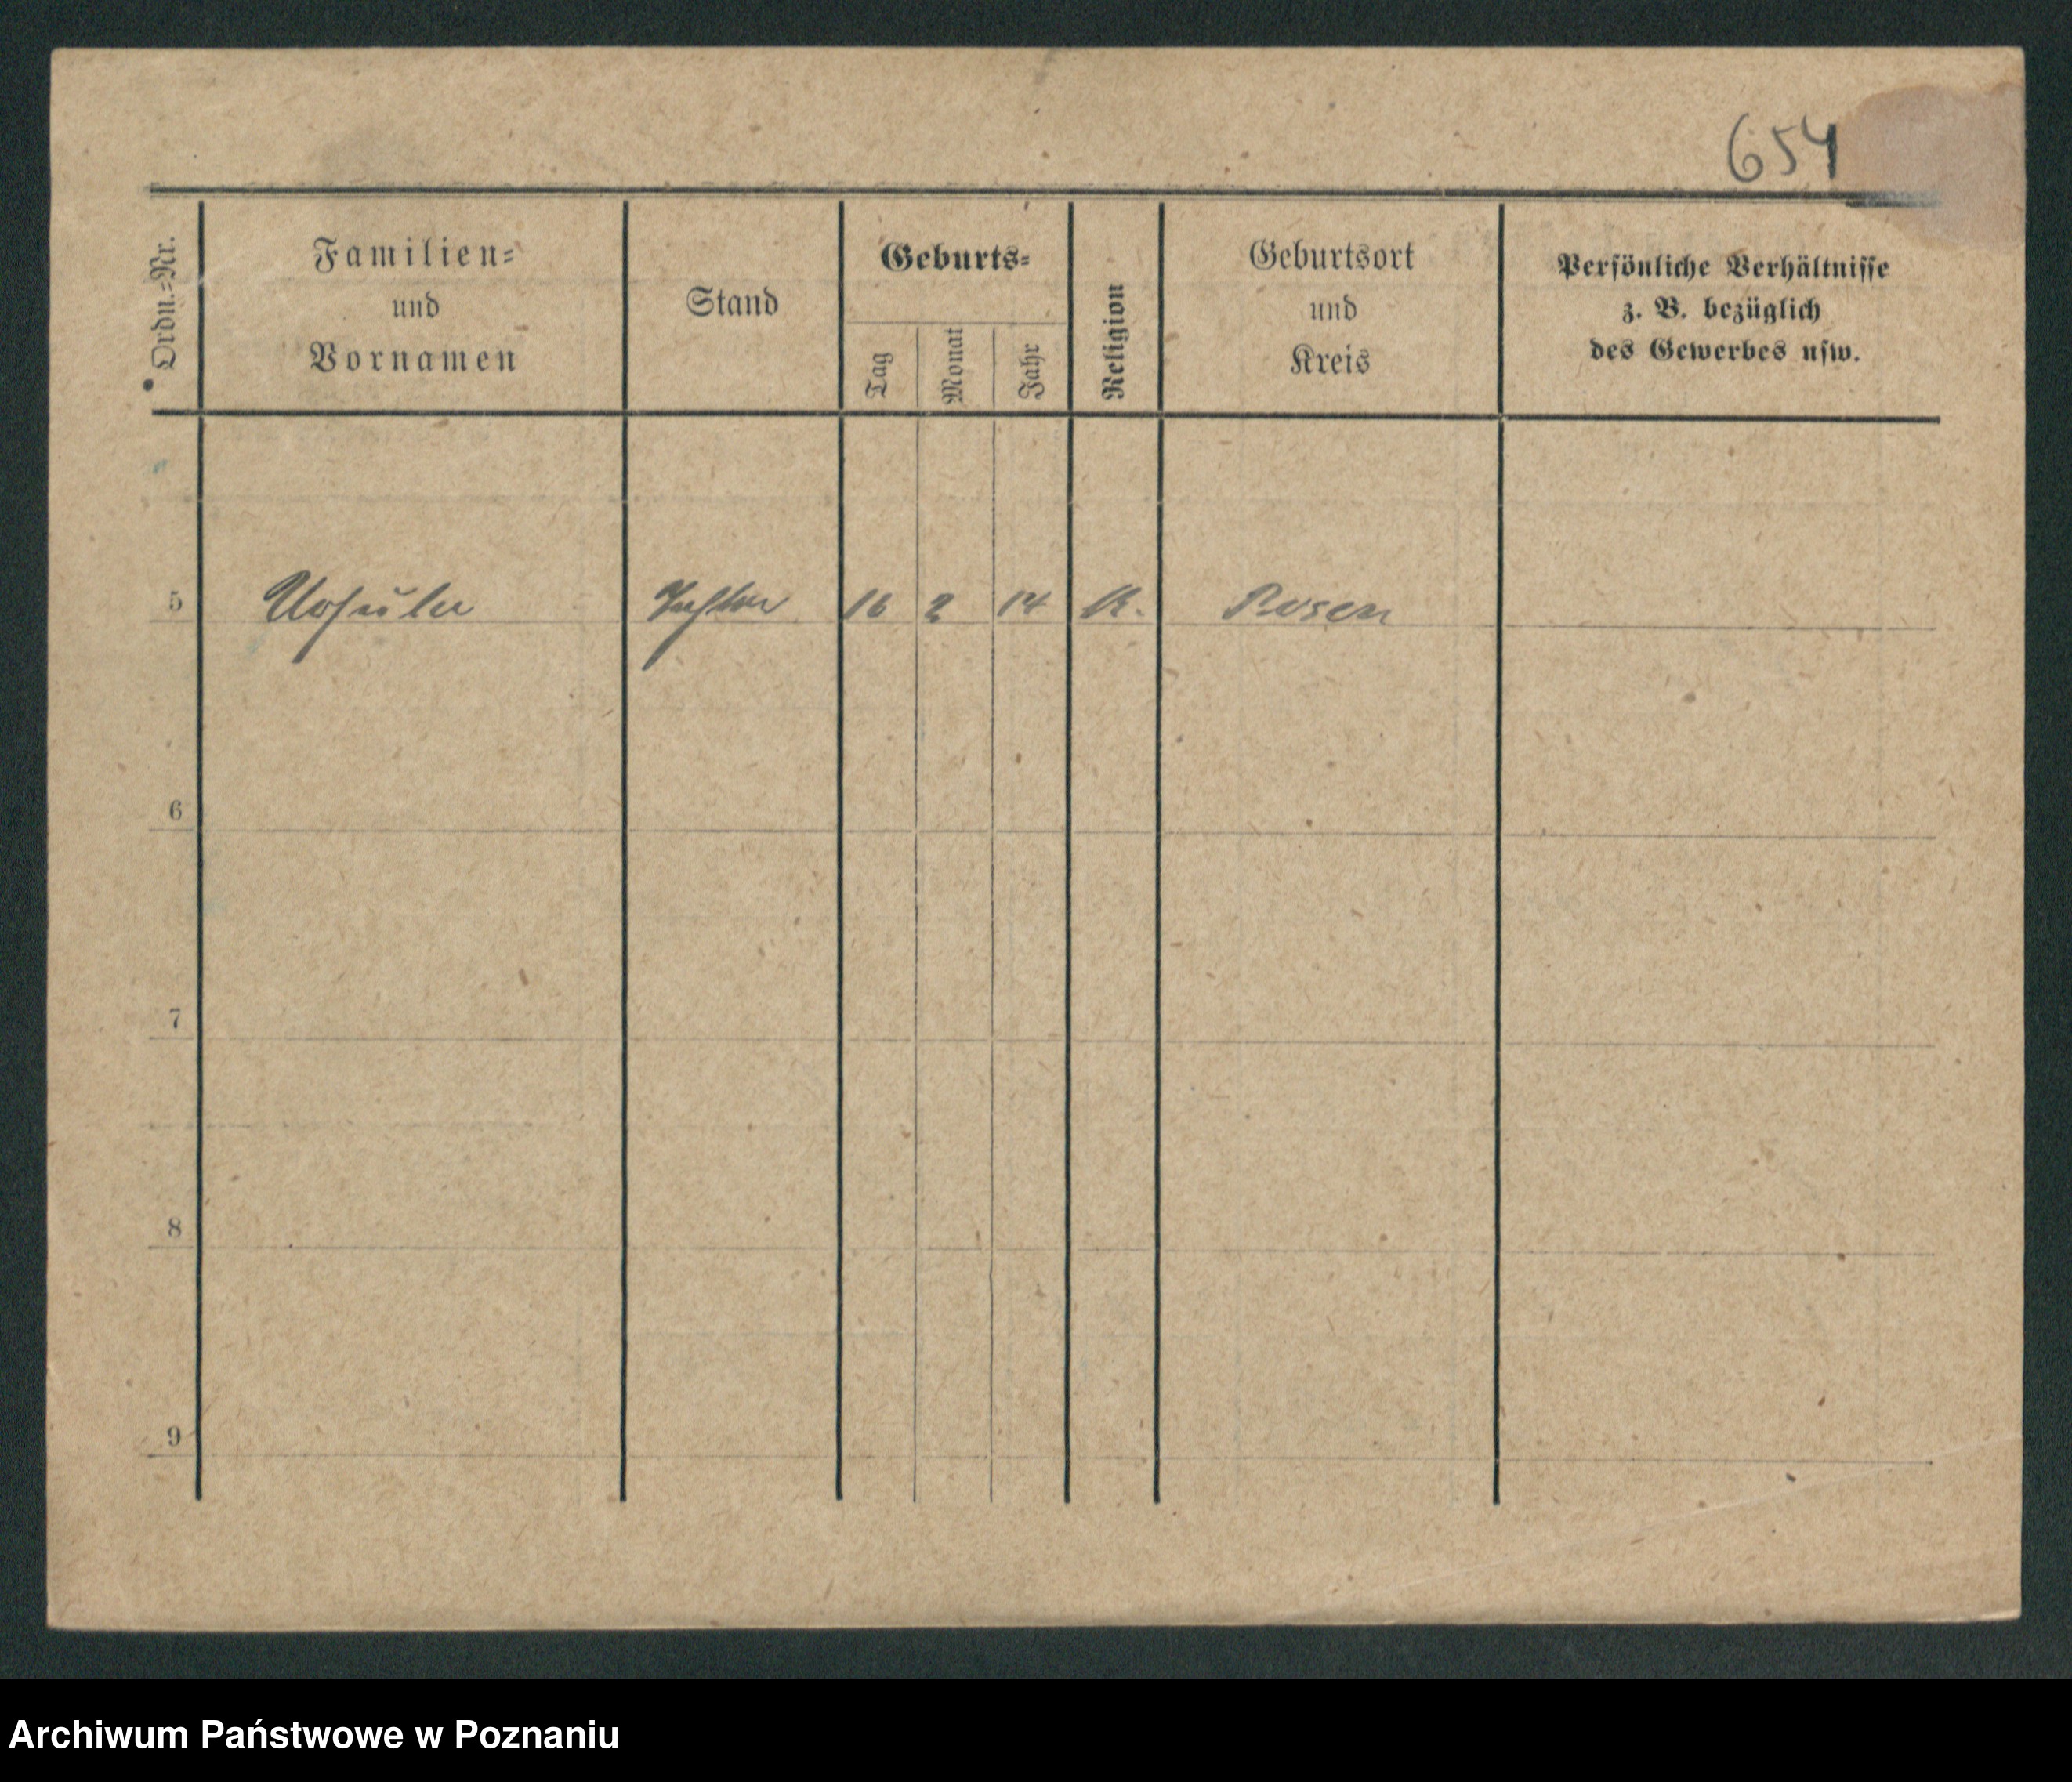 654
Ordn.-Nr.
Familien-
und
Vornamen
Stand
Geburts-
Tag
Monat
Jahr
Religion
Geburtsort
und
Kreis
Persönliche Verhältnisse
z. B. bezüglich
des Gewerbes usw.
5 Ursula Tochter 16 2 14 K. Posen
6
7
8
9
Archiwum Państwowe w Poznaniu